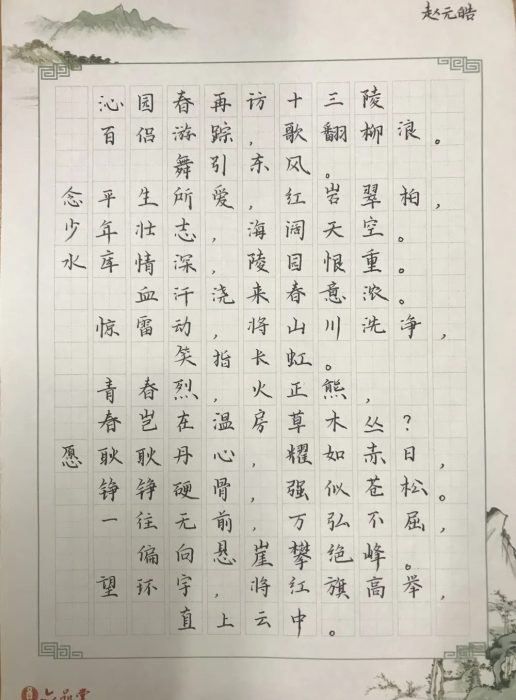 赵元皓
沁园春 再访十三陵
百侣游踪,歌翻柳浪。
舞引东风。
念平生所爱,红岩翠柏,
少年壮志,海阔天空。
水库情深,陵园恨重。
血汗浇来春意浓。
惊雷动,将山川洗净,
笑指长虹。
青春烈火正熊,
春岂在温房草木丛?
愿耿耿丹心,耀如赤日,
铮铮硬骨,强似苍松。
一往无前,万弘不屈,
偏向悬崖攀绝峰。
望环宇,将红旗高举,
直上云中。
六品堂